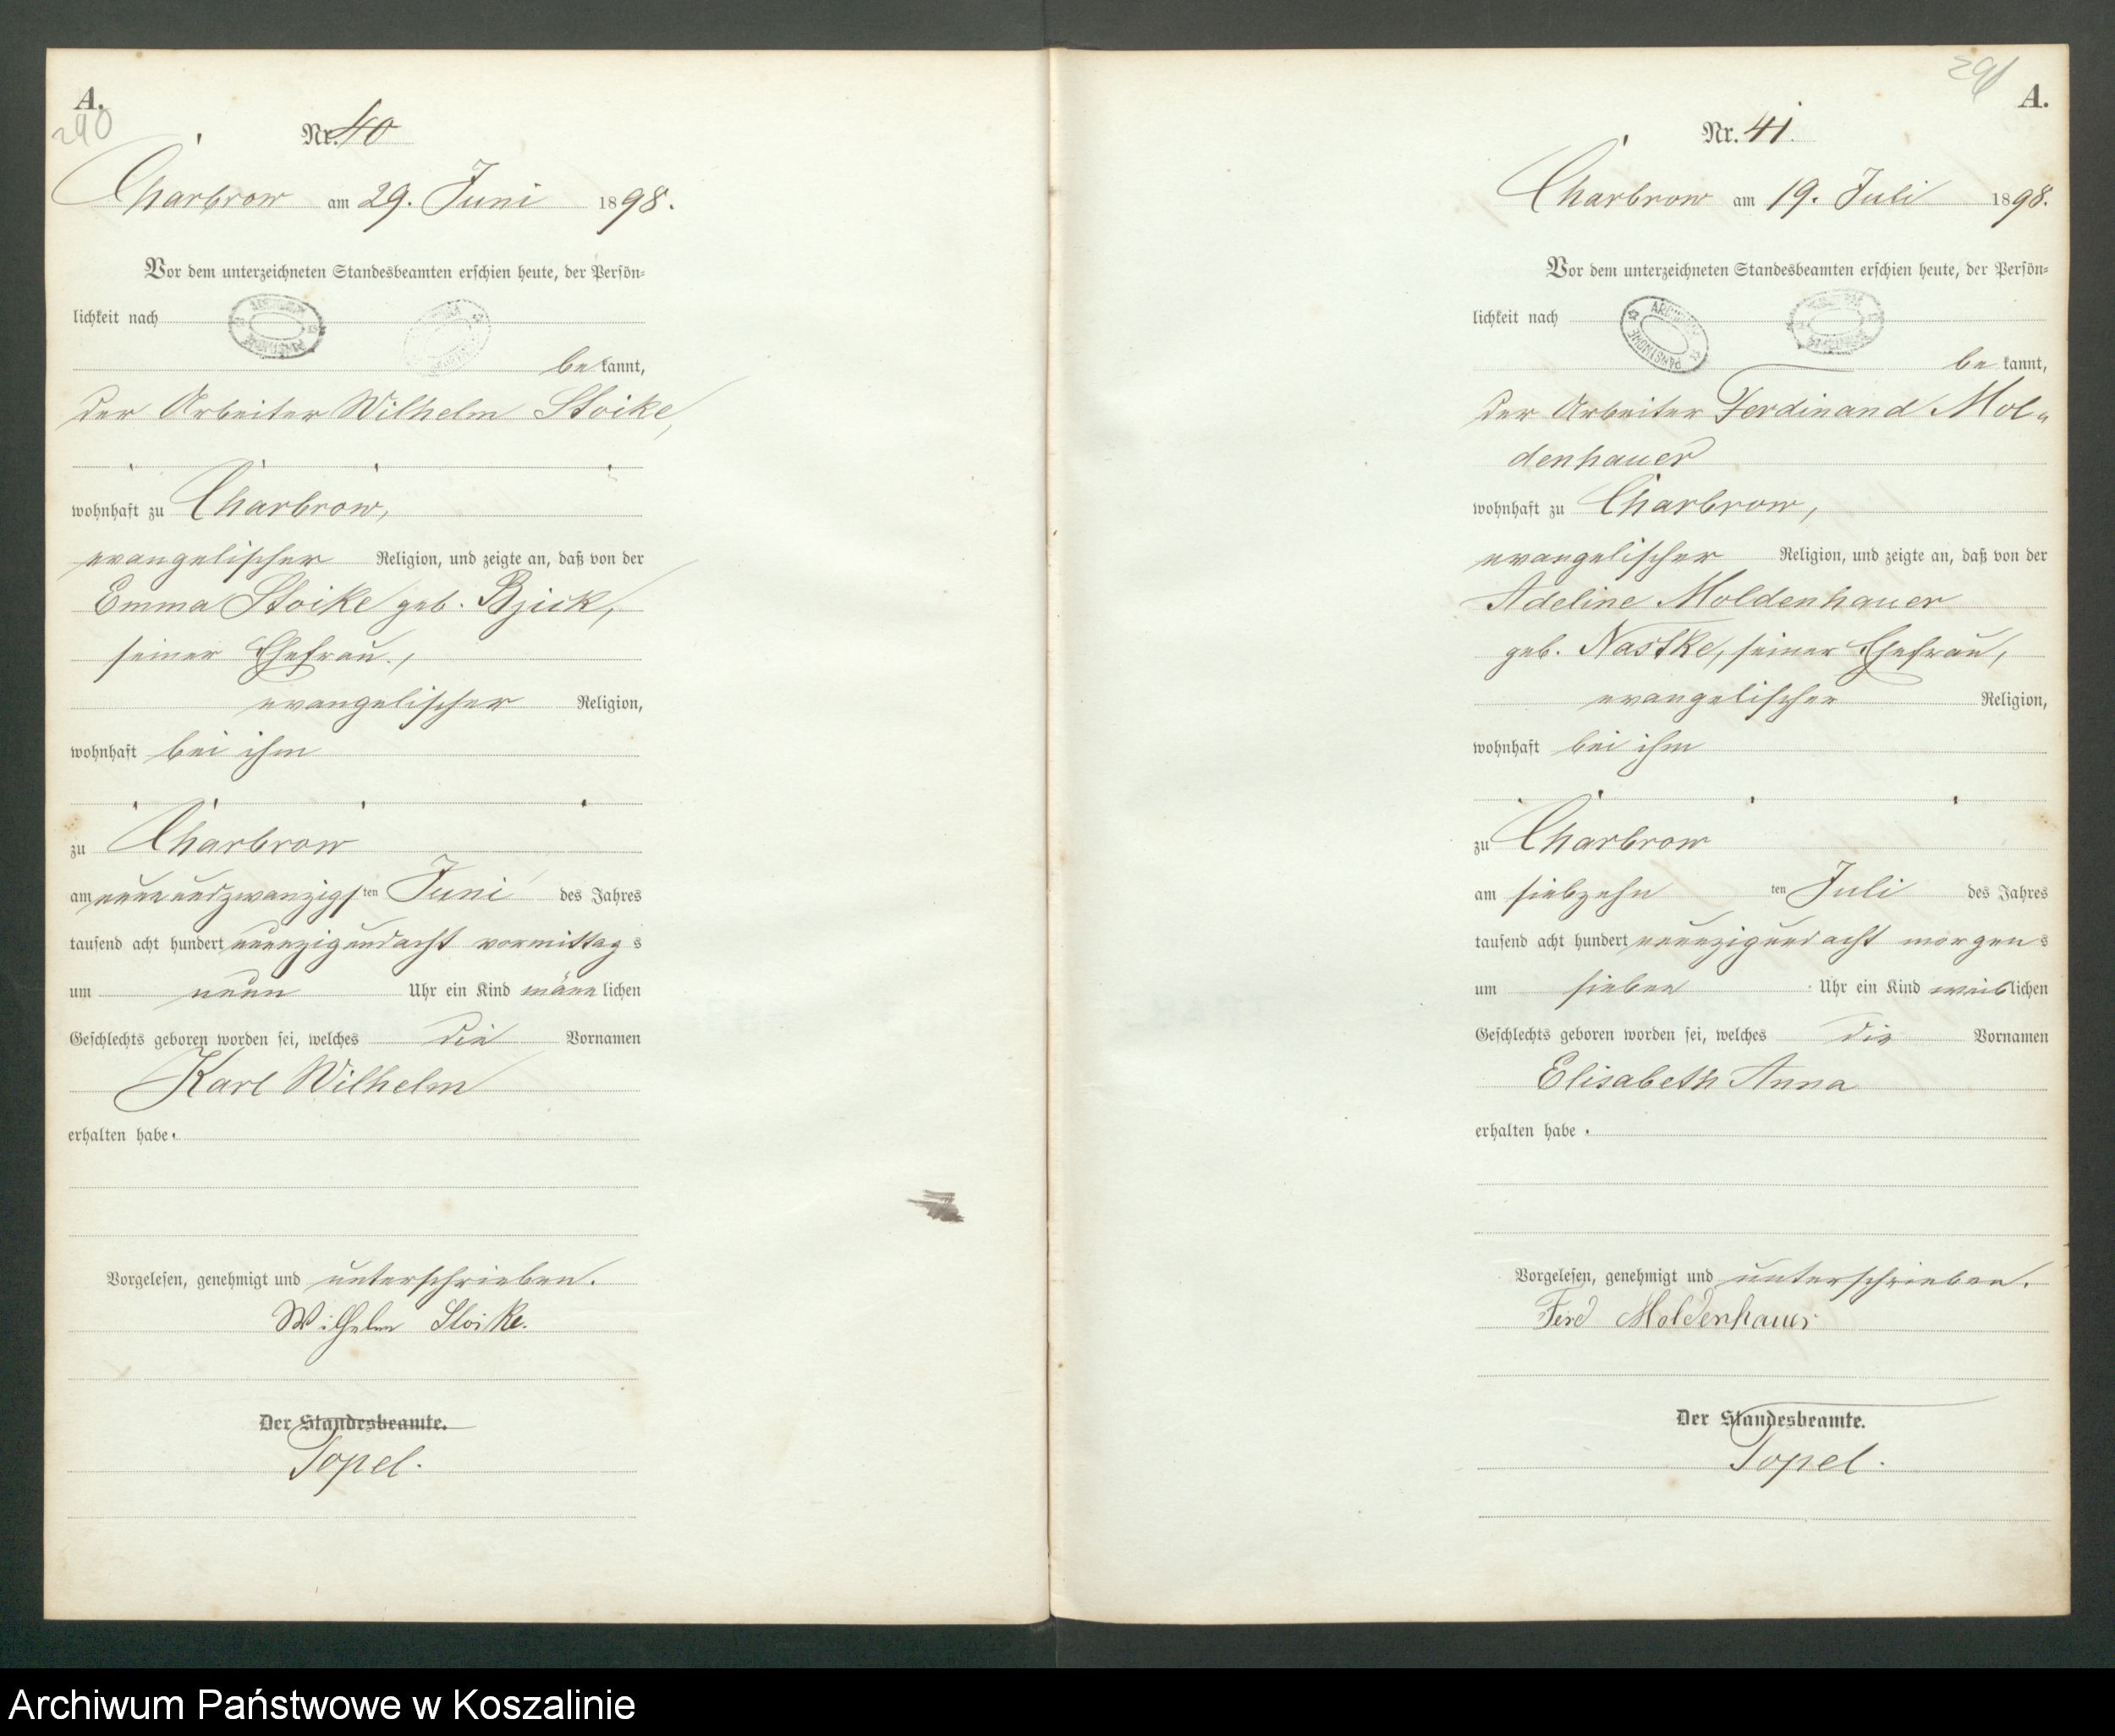 A.
290
Nr. 40
Charbrow am 29. Juni 1898.
Vor dem unterzeichneten Standesbeamten erschien heute, der Persön-
lichkeit nach
bekannt,
der Arbeiter Wilhelm Stoike,
wohnhaft zu Charbrow,
evangelischer Religion, und zeigte an, daß von der
Emma Stoike geb. Bzick,
seiner Ehefrau,
evangelischer Religion,
wohnhaft bei ihm
zu Charbrow
am neunundzwanzigsten Juni des Jahres
tausend acht hundert neunzigundacht vormittags
um neun Uhr ein Kind männlichen
Geschlechts geboren worden sei, welches die Vornamen
Karl Wilhelm
erhalten habe.
Vorgelesen, genehmigt und unterschrieben.
Wilhelm Stoike.
Der Standesbeamte.
Topel.
A.
Nr. 41.
Charbrow am 19. Juli 1898.
Vor dem unterzeichneten Standesbeamten erschien heute, der Persön-
lichkeit nach
ARCHIWUM PAŃSTWOWE
bekannt,
der Arbeiter Ferdinand Mol-
denhauer
wohnhaft zu Charbrow,
evangelischer Religion, und zeigte an, daß von der
Adeline Moldenhauer
geb. Nastke, seiner Ehefrau,
evangelischer Religion,
wohnhaft bei ihm
zu Charbrow
am siebzehnten Juli des Jahres
tausend acht hundert neunzigundacht morgens
um sieben Uhr ein Kind weiblichen
Geschlechts geboren worden sei, welches die Vornamen
Elisabeth Anna
erhalten habe.
Vorgelesen, genehmigt und unterschrieben.
Ferd Moldenhauer
Der Standesbeamte.
Topel.
Archiwum Państwowe w Koszalinie